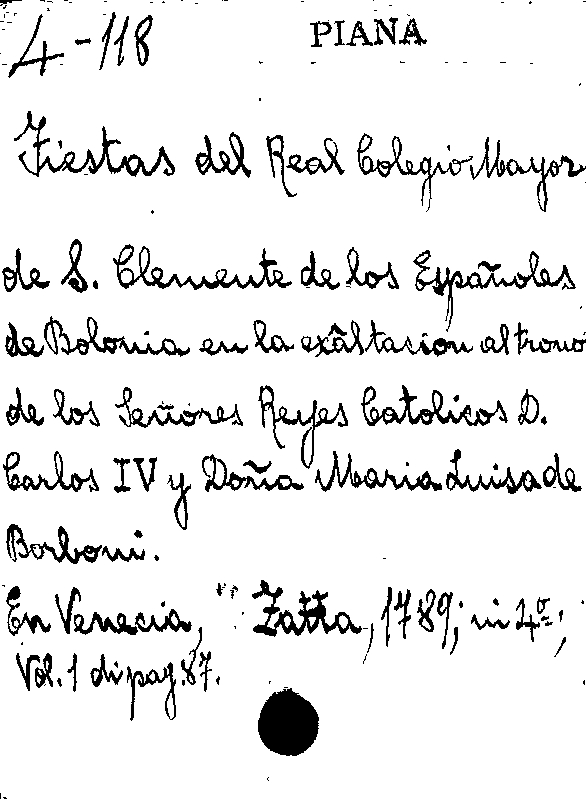 4-118 PIANA
Fiestas del Real Colegio Mayor
de S. Clemente de los Españoles
de Bolonia en la exâltacion al trono
de los Señores Reyes Catolicos D.
Carlos IV y Doña Maria Luisa de
Borboni.
En Venecia, " Zatta, 1789; in 4º;
Vol. 1 di pag. 87.